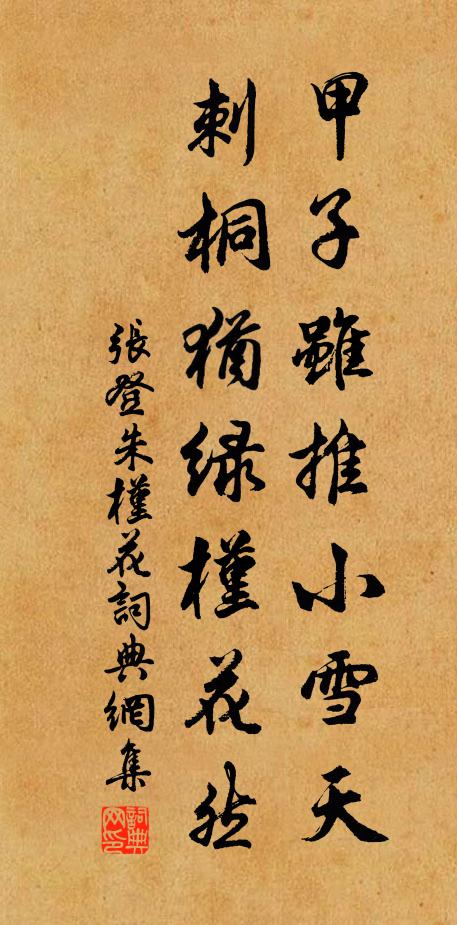 甲子雖推小雪天
刺桐猶緑槿花然
張登朱槿花詞典網集
詞典网印